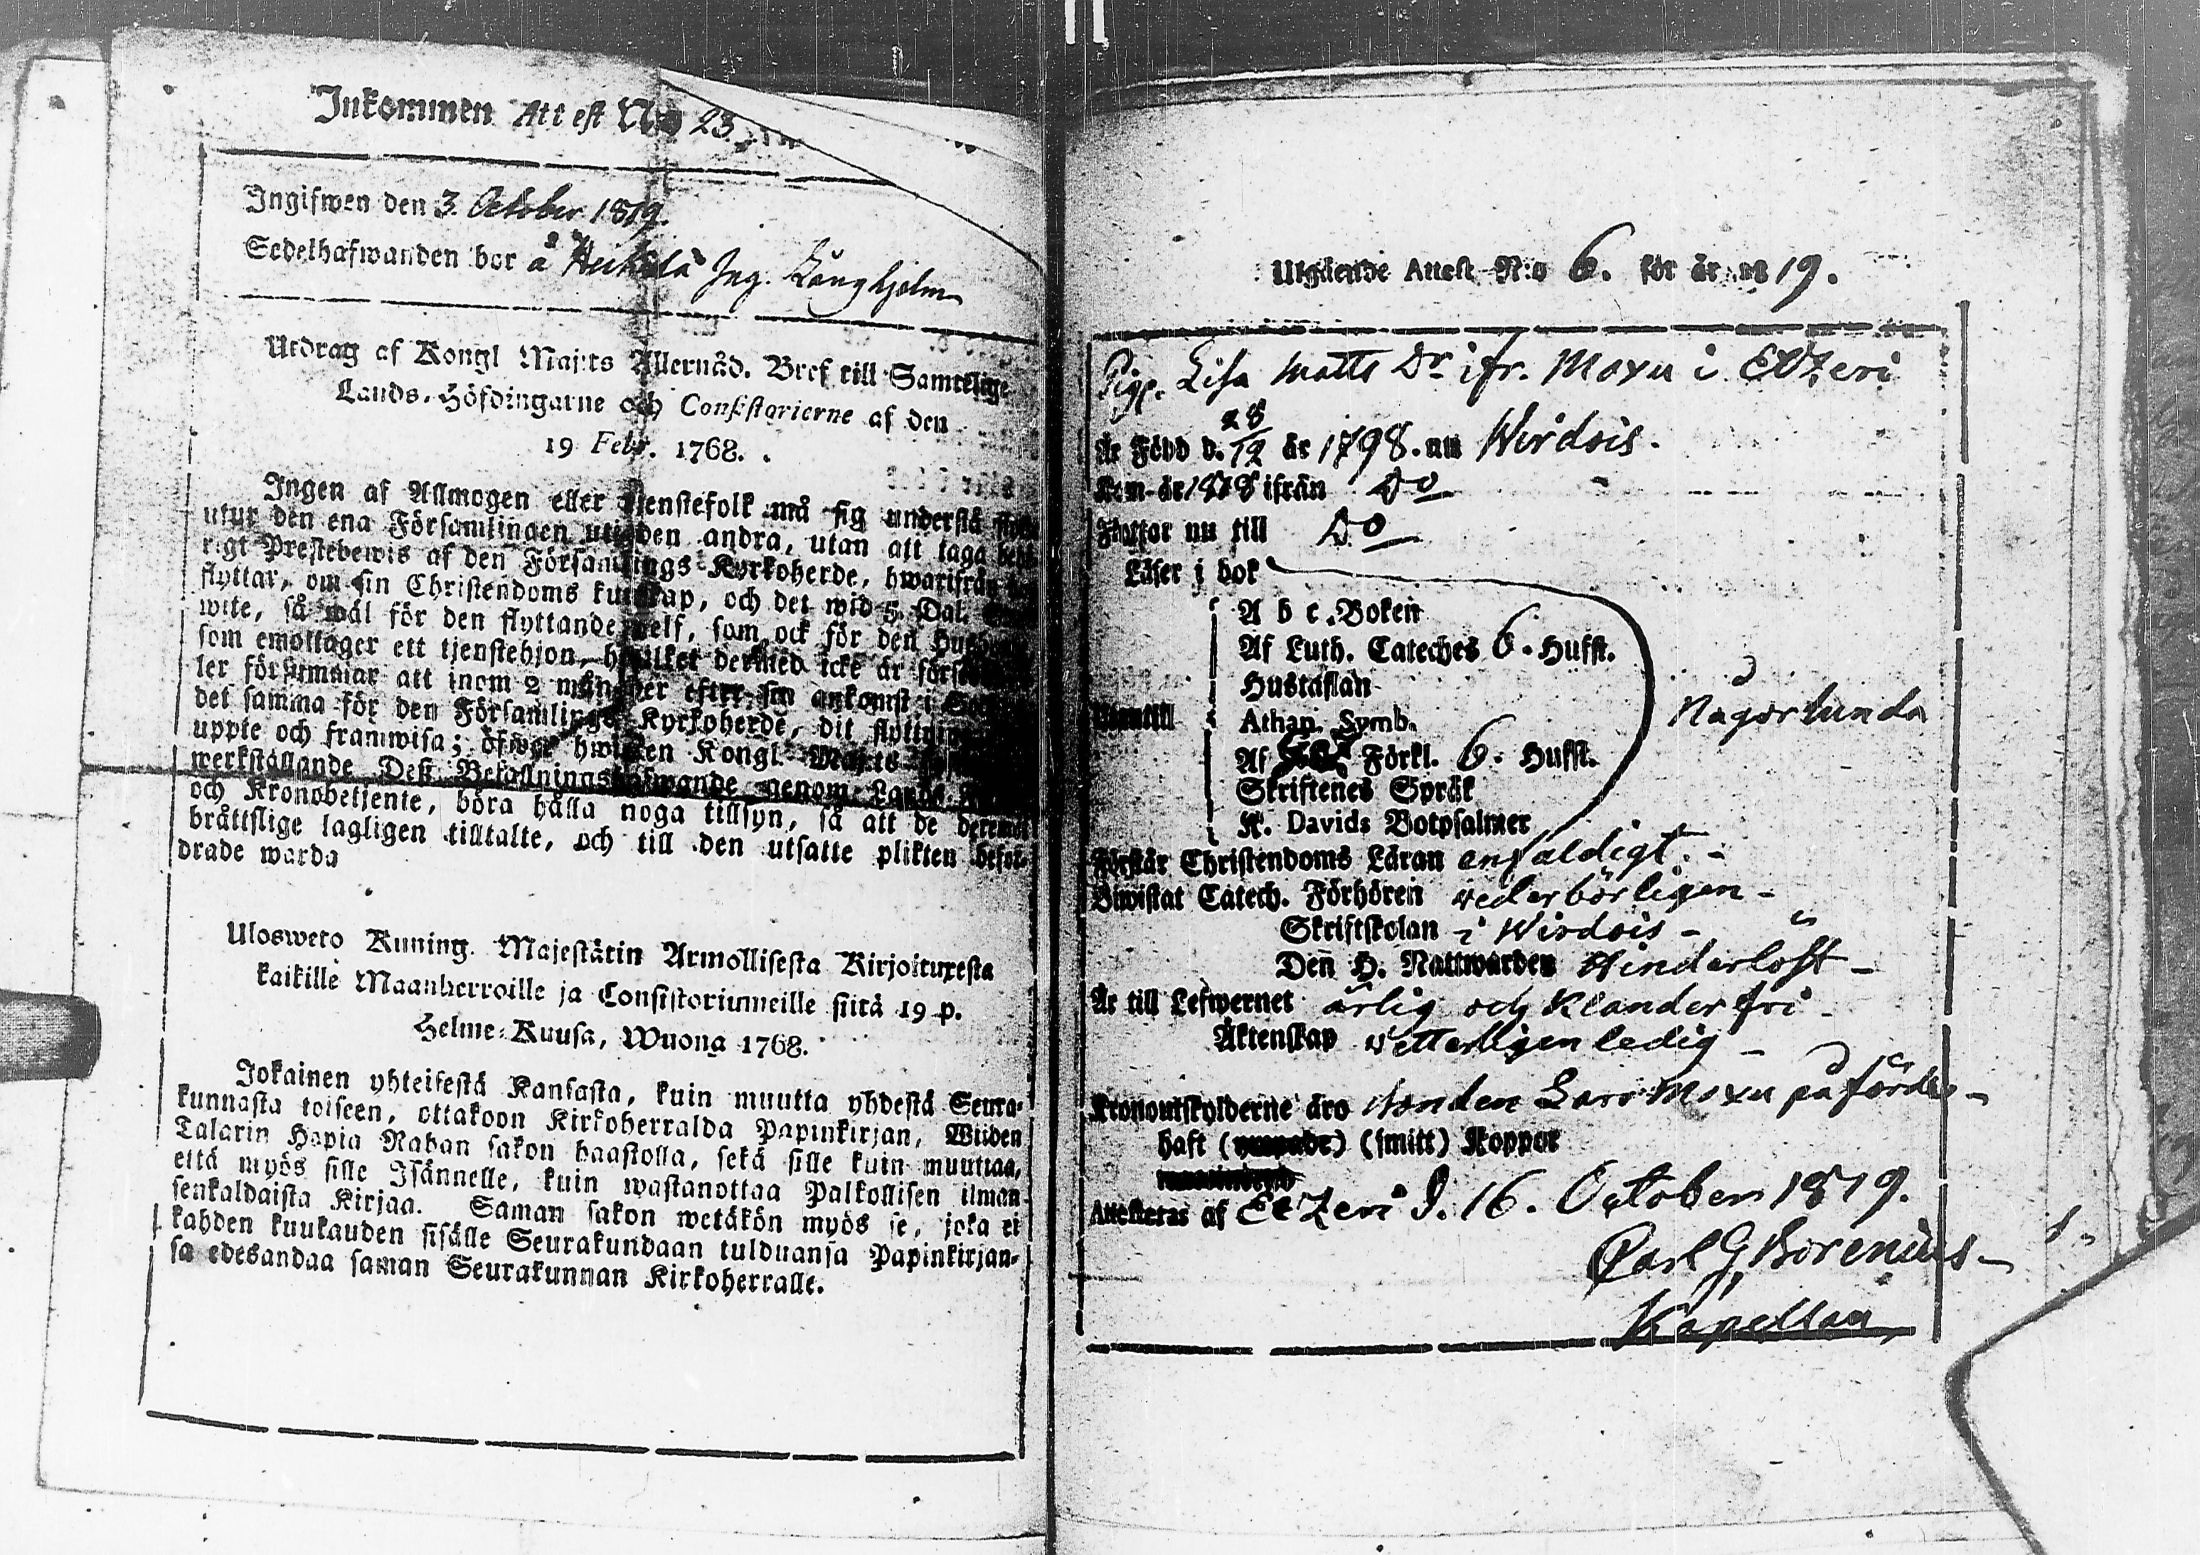 Inkommen Attest No 23
Ingifwen den 3 October 1819.
Sedelhafwanden bor å Heikilä Ing. Långhjelm
Utdrag af Kongl Maj:ts Allernåd. Bref till Samtelige
Lands-Höfdingarne och Consistorierne af den
19 Febr. 1768.
Ingen af Allmogen eller tjenstefolk må sig understå
utur den ena Församlingen uti den andra, utan att taga
rigt Prestebewis af den Församlings Kyrkoherde, hwarifrån
flyttar, om sin Christendoms kunskap, och det wid 5. Dal.
wite, så wäl för den flyttande self, som ock för den
som emottager ett tjenstehjon, hwilket dermed icke är
ler försummar att inom 2 månader efter sin ankomst i
det samma för den Församlings Kyrkoherde, dit
uppte och framwisa; öfwer hwilken Kongl Maj:ts
werkställande Dess Befallningshafwande genom Lands
och Kronobetjente, böra hålla noga tillsyn, så att de
bråttslige lagligen tilltalte, och till den utsatte plikten befor-
drade warda
Ulosweto Kuning. Majestätin Armollisesta Kirjoituxesta
kaikille Maanherroille ja Consistoriumeille siitä 19 p.
Helme-Kuusa, Wuona 1768.
Jokainen yhteisestä Kansasta, kuin muutta yhdestä Seura-
kunnasta toiseen, ottakoon Kirkoherralda Papinkirjan, Wiiden
Talarin Hopia Rahan sakon haastolla, sekä sille kuin muuttaa,
että myös sille Isännelle, kuin wastanottaa Palkollisen ilman
senkaldaista Kirjaa. Saman sakon wetäkön myös se, joka ei
kahden kuukauden sisälle Seurakundaan tulduansa Papinkirjan-
sa edesandaa saman Seurakunnan Kirkoherralle.
Utgående Attest N:o 6. för år 1819.
Pig. Lisa Matts Dr ifr. Moxu i Etzeri
Är Född d. 28/12 år 1798. uti Wirdois.
Kom år 1818 ifrån Do
Flyttar nu till Do
Läser i bok
A b c Boken
Af Luth. Cateches 6. Hufst.
Hustaflan
Athan. Symb.
Någorlunda
Utantill
Af Förkl. 6. Hufst.
Skriftenes Språk
K. Davids Botpsalmer
Förstår Christendoms Läran enfaldigt. -
Biwistat Catech. Förhören wederbörligen -
Skriftskolan i Wirdois -
Den H. Nattwarden Hinderlöst -
Är till Lefwernet ärlig och Klanderfri -
Äktenskap vetterligen ledig -
Kronoutskylderne äro Lars Moxu på
haft (smitt) Koppor
Attesteras af Etzeri d. 16. October 1819.
Carl G. Borenius -
Kapellan